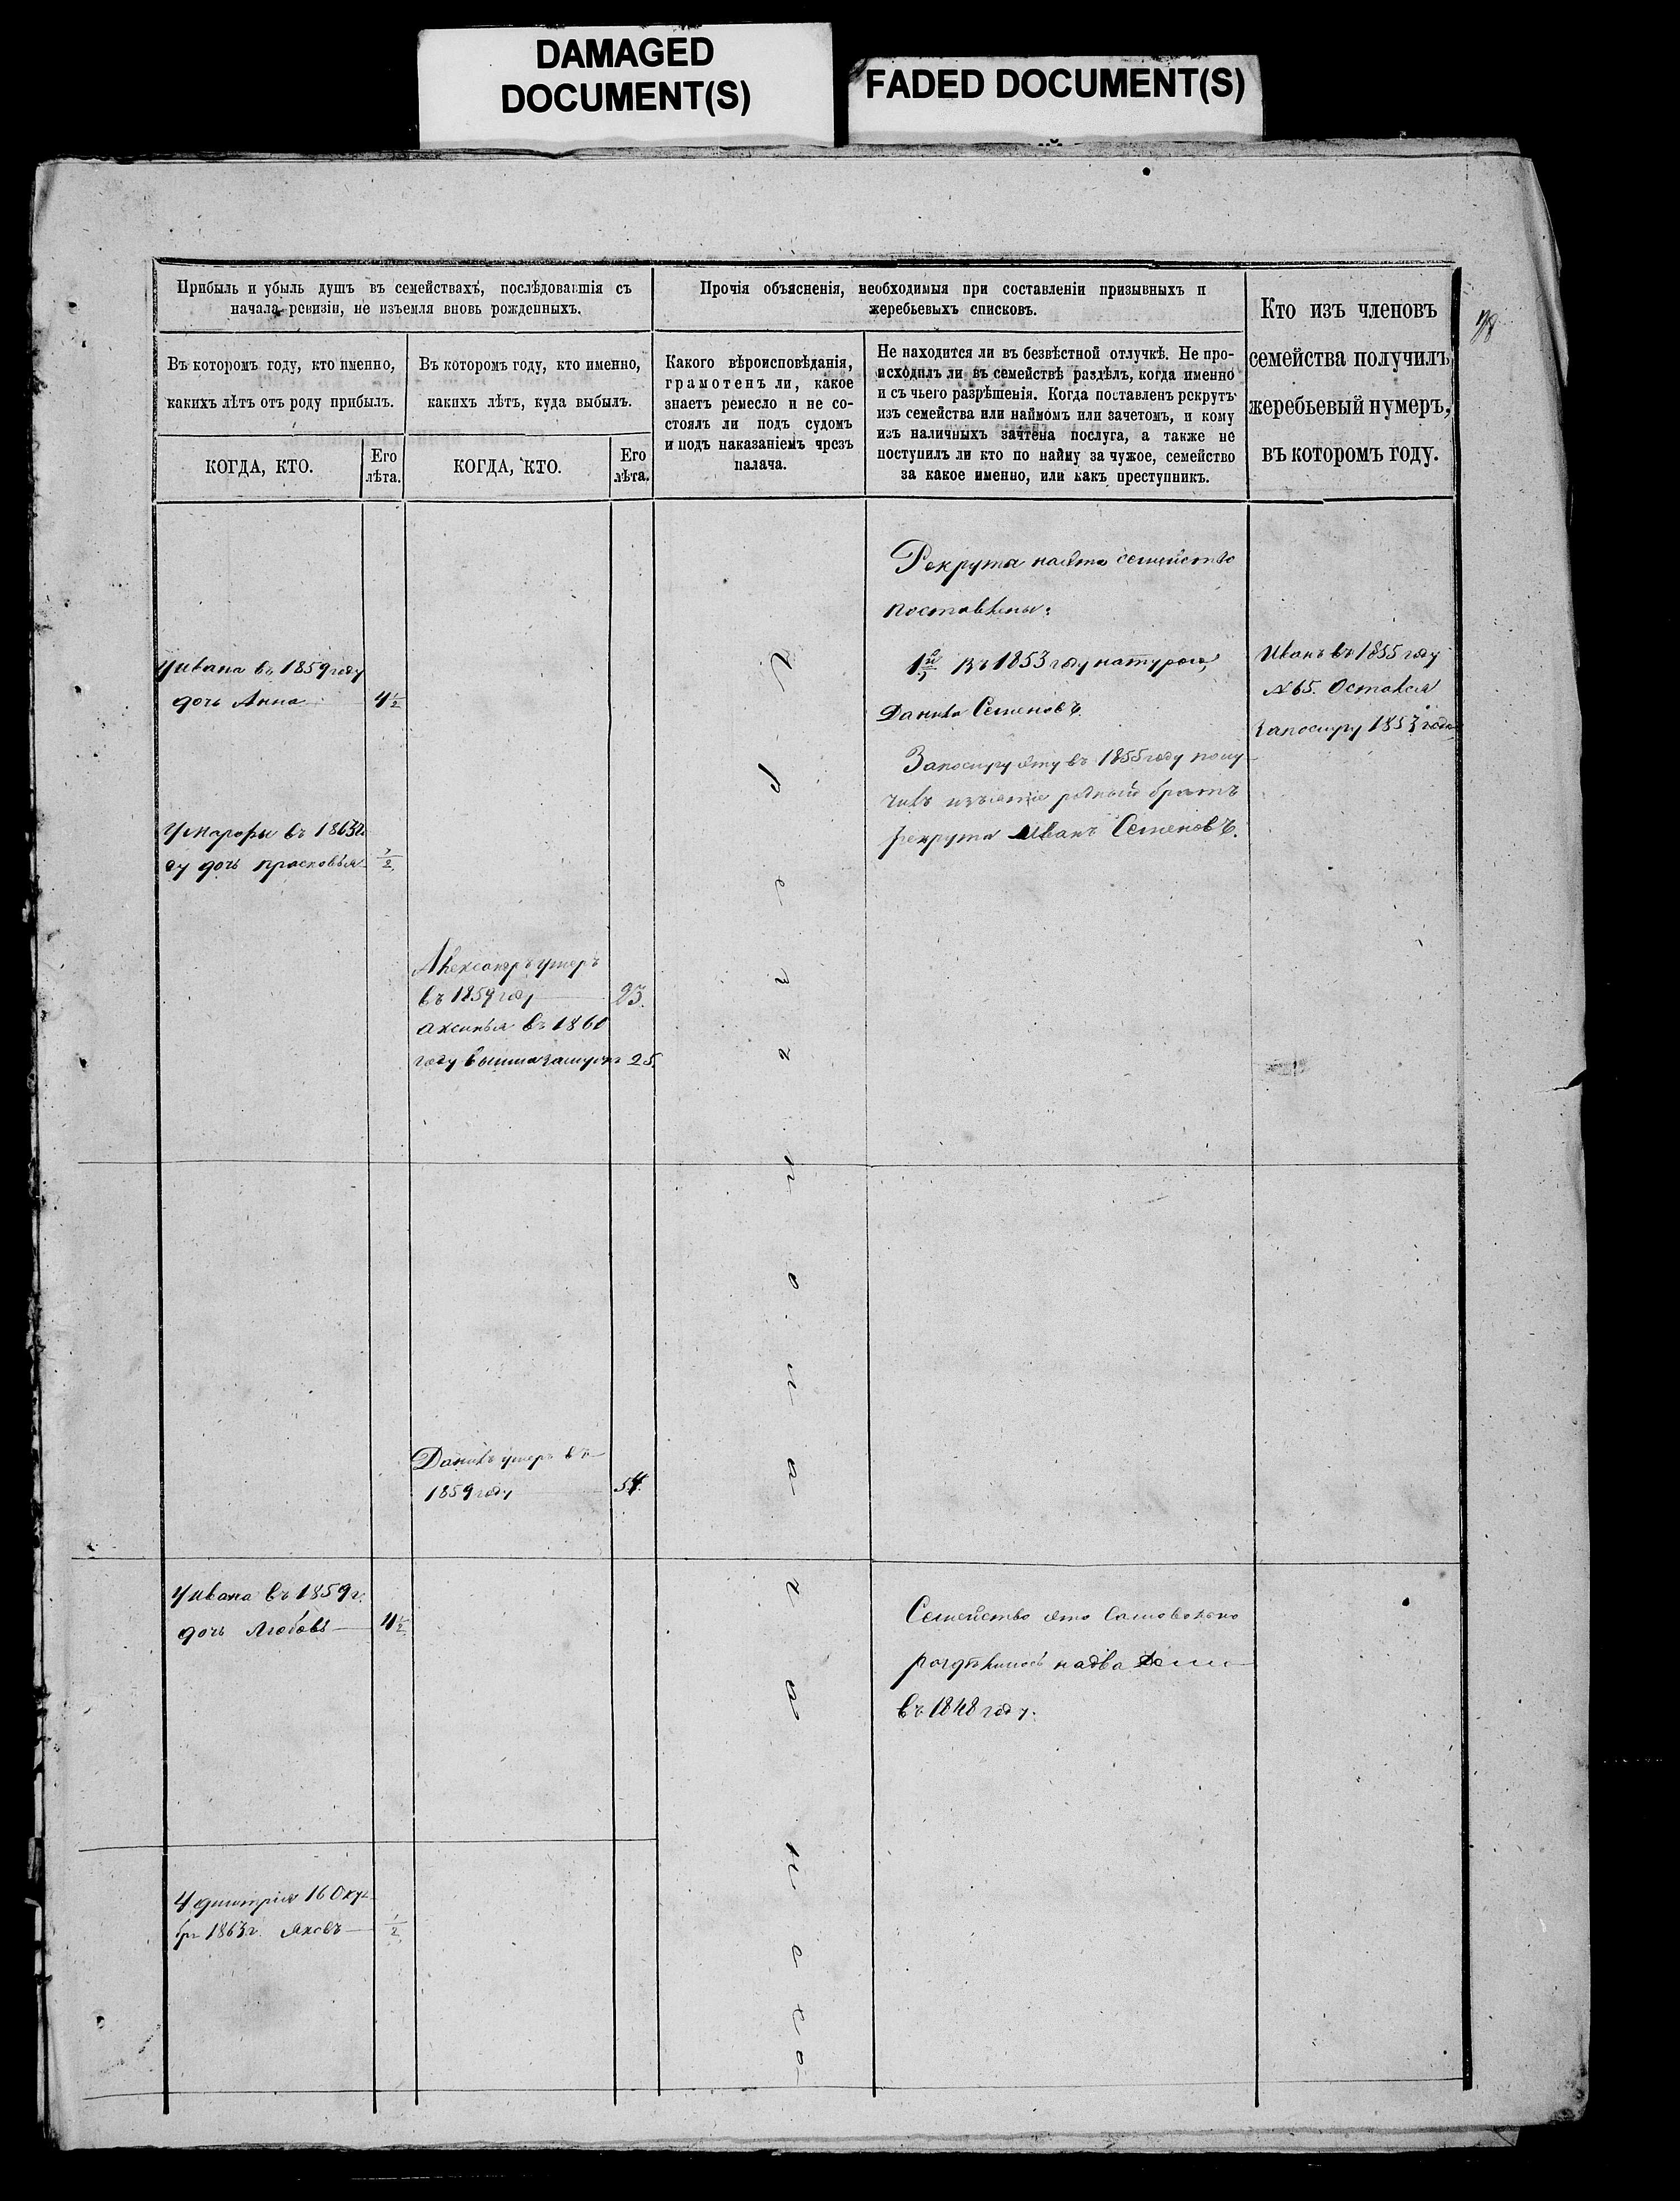 DAMAGED
DOCUMENT(S)
FADED DOCUMENT(S)
Прибыль и убыль душъ въ семействахъ, послѣдовавшія съ
начала ревизіи, не изъемля вновь рожденныхъ.
Въ которомъ году, кто именно,
какихъ лѣтъ отъ роду прибылъ.
КОГДА, КТО.
Его
лѣта.
Въ которомъ году, кто именно,
какихъ лѣтъ, куда выбылъ.
КОГДА, КТО.
Его
лѣта.
Прочія объясненія, необходимыя при составленіи призывныхъ и
жеребьевыхъ списковъ.
Какого вѣроисповѣданія,
грамотенъ ли, какое
знаетъ ремесло и не со-
стоялъ ли подъ судомъ
и подъ наказаніемъ чрезъ
палача.
Не находится ли въ безвѣстной отлучкѣ. Не про-
исходилъ ли въ семействѣ раздѣлъ, когда именно
и съ чьего разрѣшенія. Когда поставленъ рекрутъ
изъ семейства или наймомъ или зачетомъ, и кому
изъ наличныхъ зачтена послуга, а также не
поступилъ ли кто по найму за чужое, семейство
за какое именно, или какъ преступникъ.
Кто изъ членовъ
семейства получилъ
жеребьевый нумеръ,
въ которомъ году.
Уивана въ 1859 году
дочь Анна 4½
въ 1863 г
ду дочь прасковья ½
Александръ умеръ
въ 1859 году 23.
аксинья въ 1860
году вышла замужъ 25.
Данилъ умеръ въ
1859 году 54.
Уивана въ 1859 г.
дочь Любовь 4½
Удмитрія 16 Октя
бр 1863 г. Яковъ ½
Рекрута
поставлены:
1й Въ 1853 году натурою,
Данила Семеновъ.
въ 1855 году полу
чилъ изъятіе родный братъ
рекрута Иванъ Семеновъ.
Семейство это самовольно
раздѣлилось надва
въ 1848 году.
Иванъ въ 1855 году
№ 65. Остался
1853 года